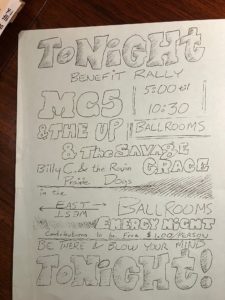 ToNIGHt
BENEFIT RALLY
MC5
5:00 til
10:30
& THE UP
BALLROOMS
& The SAVAGE
GRACE
Billy C. & the
Dogs
in the
EAST
BALLROOMS
ENERGY NIGHT
Contributions to be Free $1.00/PERSON
BE THERE & BLOW YOUR MIND
ToNIGHt!